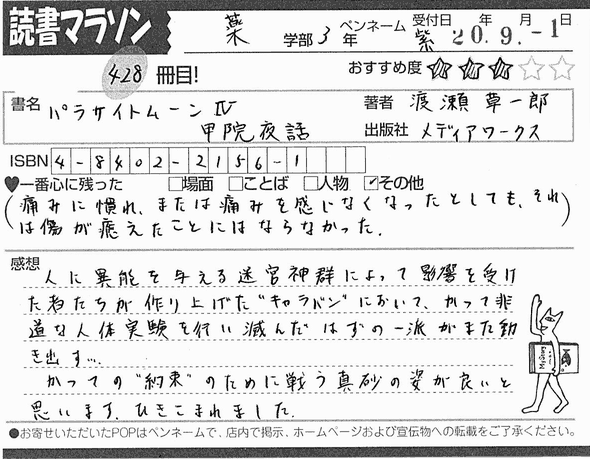 読書マラソン
薬 学部 3 年 ペンネーム 紫 受付日 年 月 日
20. 9. -1
428 冊目!
おすすめ度 ★★★☆☆
書名 パラサイトムーン Ⅳ
甲院夜話
著者 渡瀬草一郎
出版社 メディアワークス
ISBN 4-8402-2156-1
♥一番心に残った □場面 □ことば □人物 ☑その他
(痛みに慣れ、または痛みを感じなくなったとしても、それ
は傷が癒えたことにはならなかった.)
感想
人に異能を与える迷宮神群によって影響を受け
た者たちが作り上げた"キャラバン"において、かつて非
道な人体実験を行い滅んだはずの一派がまた動
き出す….
かつての"約束"のために戦う真砂の姿が良いと
思います. ひきこまれました.
●お寄せいただいたPOPはペンネームで、店内で掲示、ホームページおよび宣伝物への転載をご了承ください。